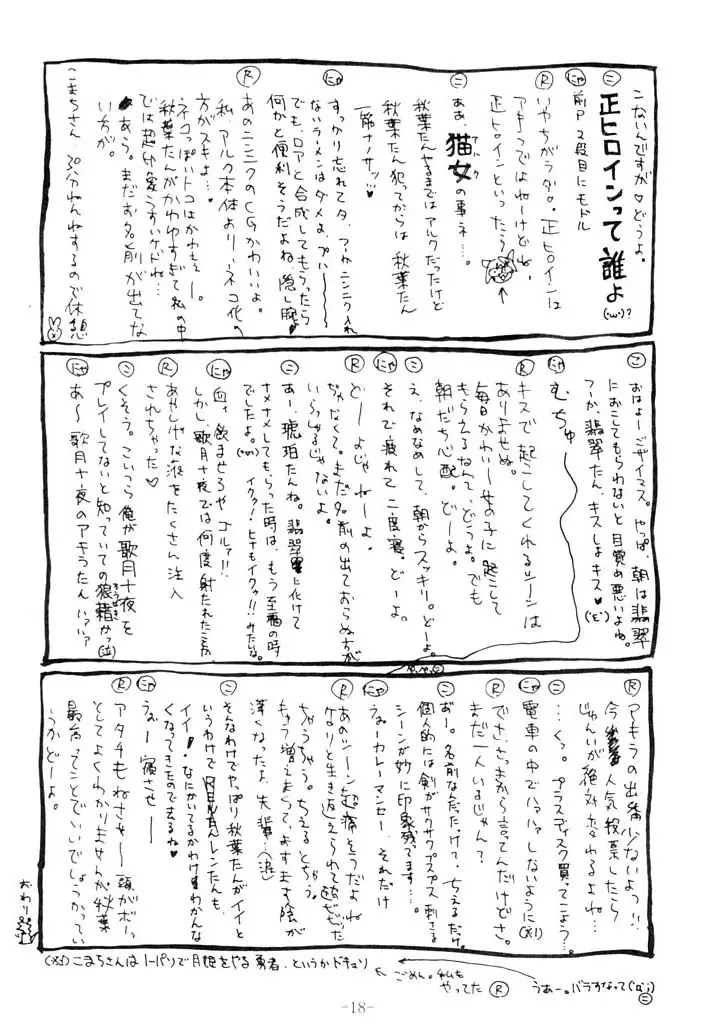 こないんですが♡どうよ。
㊁ 正ヒロインって誰よ(;'ω')?
にゃ 前P 2段目にモドル
R いやちがうダロ。正ヒロインは
アキラつではねーけどね。
正ヒロインといったら
㊁ ああ、猫女の事ネ…。
アルク
秋葉たんやるまではアルクだったけど
秋葉たん犯ってからは 秋葉たん
一筋ナノサッ…♥
にゃ すっかり忘れてタ、つーかニンニク入れ
ないラーメンはダメよ、プハー〜〜
でも、ロアと合成してもらったら
何かと便利そうだよね 隠し腕♥
R あのニンニクのCGかわいいよ。
私、アルク本体より、ネコ化の
方がスキよ…♥
ネコっぽいトコはかわぇぇー。
秋葉たんがかわゆすぎて私の中
では超印象うすいケドね…
あう。まだお名前が出てな
い方が。
こまちさん、30分ねんねするので休憩
こ おはよーゴザイマス。やっぱ、朝は翡翠
におこしてもらわないと目覚め悪いよね。
つーか、翡翠たん、キスしよキス♥('ε')
にゃ むちゅ
R キスで起こしてくれるシーンは
ありませぬ。
毎日かわいー女の子に起こして
もらえるなんて、どうよ。でも
朝だち心配。どーよ。
こ え、なめなめして、朝からスッキリ。どーよ。
にゃ それで疲れて二度寝。どーよ。
R どーよじゃねーよ。
ぢゃなくて。まだ名前の出ておらぬ方が
いらっしゃるじゃないよ。
㊁ あー、琥珀たんね。翡翠に化けて
ナメナメしてもらった時は、もう至福の時
でしたよ。(''') イクゥ!ヒすもイクゥ!!みたいな。
にゃ 血ィ飲ませろや ゴルァ!!
しかし、歌月十夜では何度射たれたことか
R あやしげな液をたくさん注入
されちゃった♡
㊁ くそう。こいつら俺が歌月十夜を
プレイしてないと知っていての狼藉かっ(泣)
ろうぜき
にゃ あ〜歌月十夜のアキラたんハァハァ
R アキラの出番少ないよっ!!
今人気投票したら
じゅんいが絶対変わるよね…
㊁ …くっ。プラスディスク買ってこよう…。
にゃ 電車の中でハァハァしないように(※1)
R でさ、さっきから言ってんだけどさ。
まだ一人いるじゃん?
㊁ おー。名前なんだたっけ?、ちえるだけ。
個人的には剣がサクサクプスプス刺さる
シーンが妙に印象残てます…。
にゃ うぉーカレーマンセー。それだけ
R あのシーン超痛そうだよね
けなりと生き返えられて超ビビった
ちゃうちゃう。ちえるとちゃう。
キャラ増えまくって、ますます陰が
深くなったよ、先輩…(泣)
㊁ そんなわけでやっぱり秋葉たんがイイと
いうわけで レンたんも
イイ!なにかいてるかわけわかんな
くなってきたので去るね♥
にゃ うぉー寝させー
R アタチもねさせ〜〜頭がボーッ
としてよくわかりませんが、秋葉
最高ってことでいいでしょうかってい
うかどーよ。
おわり
(※1) こまちさんはノーパソで月姫をやる勇者、というかドキュソ
ごめん。私も
やってた R
うあー。バラすなって('ロ';) ㊁
-18-